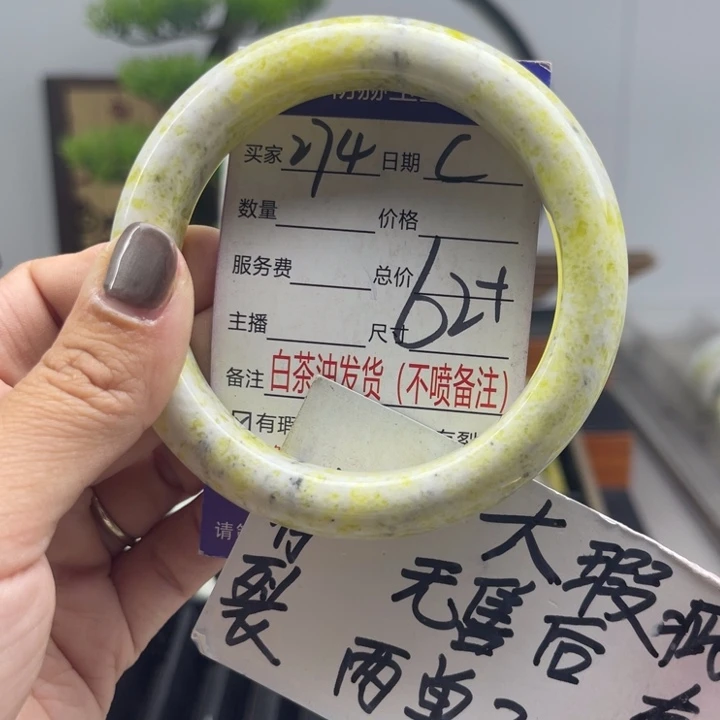 买家 274 日期 C
数量 价格
服务费 总价
主播 尺寸 62+
备注 白茶油发货（不喷备注）
有瑕 有裂
请
大瑕疵
裂 无售后
两单